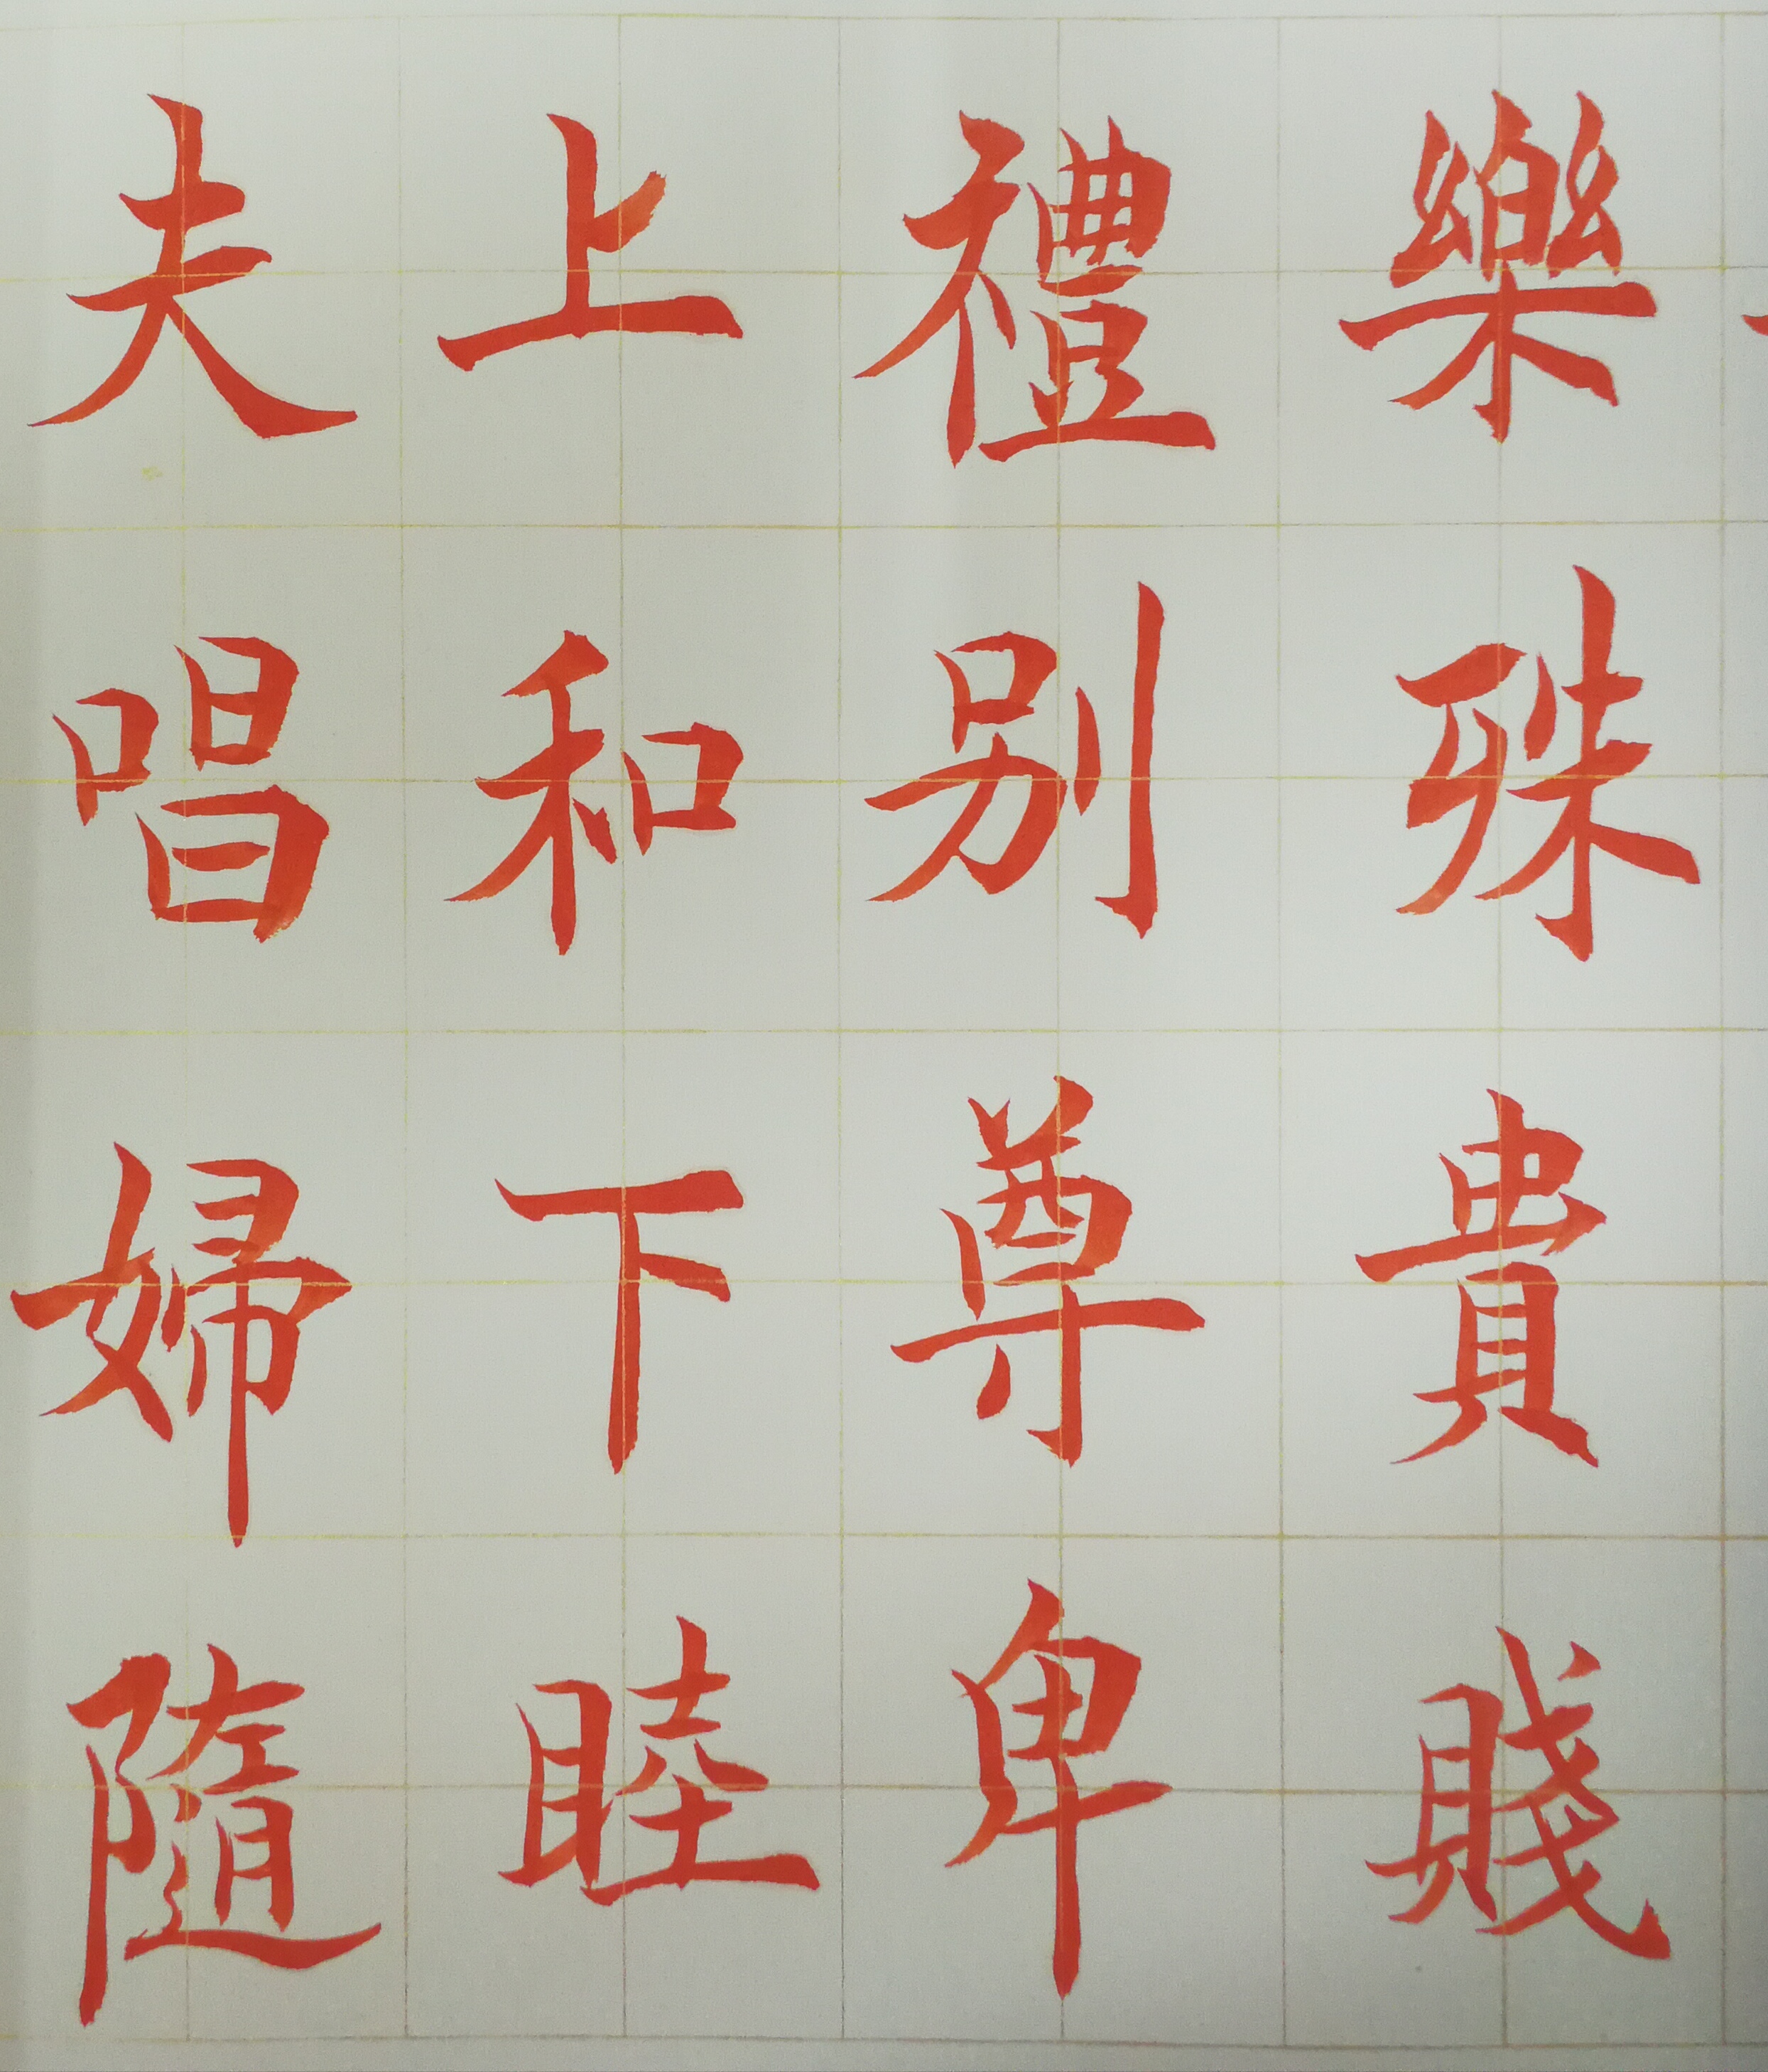 樂殊貴賤
禮别尊卑
上和下睦
夫唱婦隨